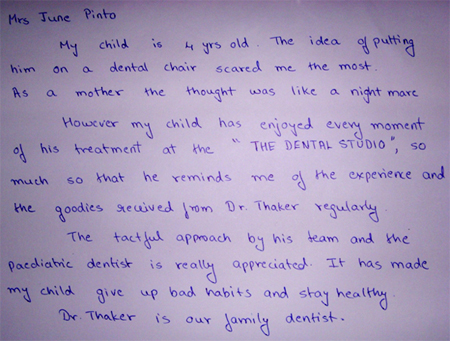 Mrs June Pinto
My child is 4 yrs old. The idea of putting
him on a dental chair scared me the most.
As a mother the thought was like a night mare
However my child has enjoyed every moment
of his treatment at the "THE DENTAL STUDIO", so
much so that he reminds me of the experience and
the goodies received from Dr. Thaker regularly.
The tactful approach by his team and the
paediatric dentist is really appreciated. It has made
my child give up bad habits and stay healthy.
Dr. Thaker is our family dentist.